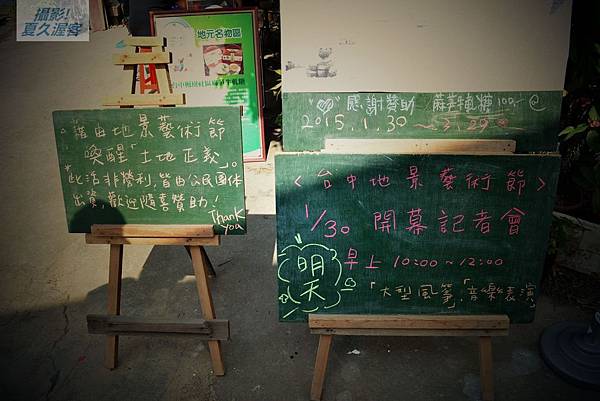 攝影!
夏久渥客
地元名物區
藉由地景藝術節
喚醒「土地正義」。
*此活非營利,皆由公民團体
出資,歡迎隨喜贊助!
Thank
you
感謝贊助
2015.1.30 ~3.29
<台中地景藝術節>
1/30 開幕記者會
早上 10:00~12:00
明天
「大型風箏」,「音樂表演」